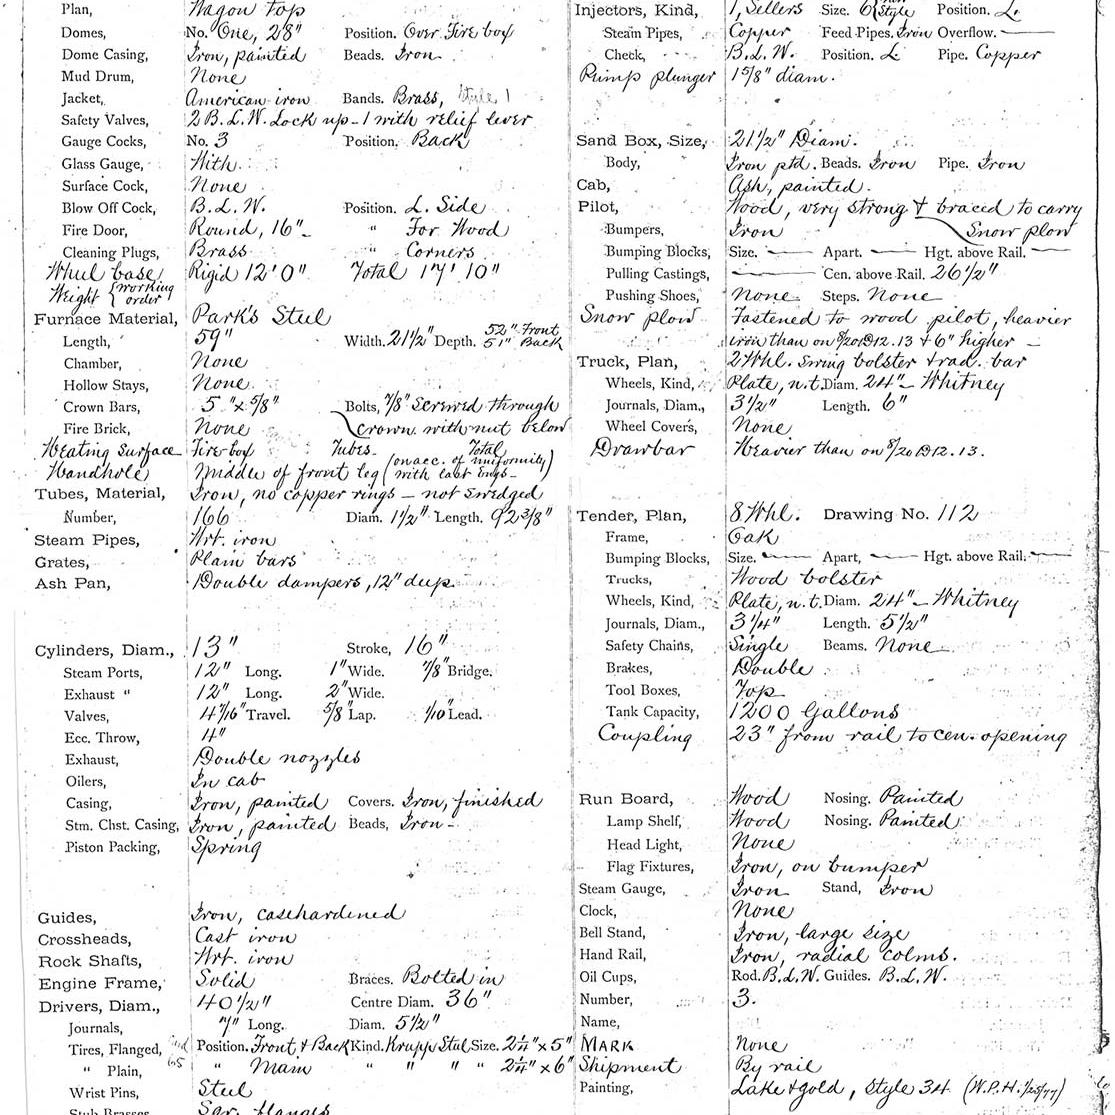 Plan, Wagon top
Domes, No. One, 28" Position. Over Fire box
Dome Casing, Iron, painted Beads. Iron
Mud Drum, None
Jacket, American iron Bands. Brass, style 1
Safety Valves, 2 B.L.W. Lock up - 1 with relief lever
Gauge Cocks, No. 3 Position. Back
Glass Gauge, With
Surface Cock, None
Blow Off Cock, B.L.W. Position. L. Side
Fire Door, Round, 16" " For Wood
Cleaning Plugs, Brass " Corners
Wheel base Rigid 12' 0" Total 17' 10"
Weight { working order
Furnace Material, Park's Steel
Length, 59" Width. 21 1/2" Depth. 52" Front 51" Back
Chamber, None
Hollow Stays, None
Crown Bars, 5" x 5/8" Bolts, 7/8" Screwed through
Fire Brick, None crown with nut below
Heating Surface Fire box Tubes Total
Handhole Middle of front leg (on acc. of uniformity with last Engs -)
Tubes, Material, Iron, no copper rings - not swedged
Number, 166 Diam. 1 1/2" Length. 92 3/8"
Steam Pipes, Wrt. iron
Grates, Plain bars
Ash Pan, Double dampers, 12" deep
Cylinders, Diam., 13" Stroke, 16"
Steam Ports, 12" Long. 1" Wide. 7/8" Bridge.
Exhaust " 12" Long. 2" Wide.
Valves, 4 7/16" Travel. 5/8" Lap. 1/10" Lead.
Ecc. Throw, 4"
Exhaust, Double nozzles
Oilers, In cab
Casing, Iron, painted Covers. Iron, finished
Stm. Chst. Casing, Iron, painted Beads, Iron -
Piston Packing, Spring
Guides, Iron, casehardened
Crossheads, Cast iron
Rock Shafts, Wrt. iron
Engine Frame, Solid Braces. Bolted in
Drivers, Diam., 40 1/2" Centre Diam. 36"
Journals, 7" Long. Diam. 5 1/2"
Tires, Flanged, Position. Front & Back Kind. Krupp Steel Size. 2 1/4" x 5"
" Plain, " Main " " " " 2 1/4" x 6"
Wrist Pins, Steel
Stub Brasses
Injectors, Kind, 1, Sellers Size. 6 { Style Position. L.
Steam Pipes, Copper Feed Pipes. Iron Overflow. —
Check, B.L.W. Position. L Pipe. Copper
Pump plunger 1 5/8" diam.
Sand Box, Size, 21 1/2" Diam.
Body, Iron ptd. Beads. Iron Pipe. Iron
Cab, Ash, painted.
Pilot, Wood, very strong & braced to carry
Bumpers, Iron Snow plow
Bumping Blocks, Size. — Apart. — Hgt. above Rail. —
Pulling Castings, — Cen. above Rail. 26 1/2"
Pushing Shoes, None Steps. None
Snow plow Fastened to wood pilot, heavier
iron than on 8/20 D 12.13 & 6" higher -
Truck, Plan, 2 Whl. Swing bolster & rad. bar
Wheels, Kind, Plate, n.t. Diam. 24" - Whitney
Journals, Diam., 3 1/2" Length. 6"
Wheel Covers, None
Drawbar Heavier than on 8/20 D 12.13.
Tender, Plan, 8 Whl. Drawing No. 112
Frame, Oak
Bumping Blocks, Size. — Apart, — Hgt. above Rail. —
Trucks, Wood bolster
Wheels, Kind, Plate, n.t. Diam. 24" - Whitney
Journals, Diam., 3 1/4" Length. 5 1/2"
Safety Chains, Single Beams. None
Brakes, Double
Tool Boxes, Top
Tank Capacity, 1200 Gallons
Coupling 23" from rail to cen. opening
Run Board, Wood Nosing. Painted
Lamp Shelf, Wood Nosing. Painted
Head Light, None
Flag Fixtures, Iron, on bumper
Steam Gauge, Iron Stand, Iron
Clock, None
Bell Stand, Iron, large size
Hand Rail, Iron, radial colms.
Oil Cups, Rod. B.L.W. Guides. B.L.W.
Number, 3.
Name,
MARK None
Shipment By rail
Painting, Lake & gold, Style 34 (W.P.H. 1/25/77)